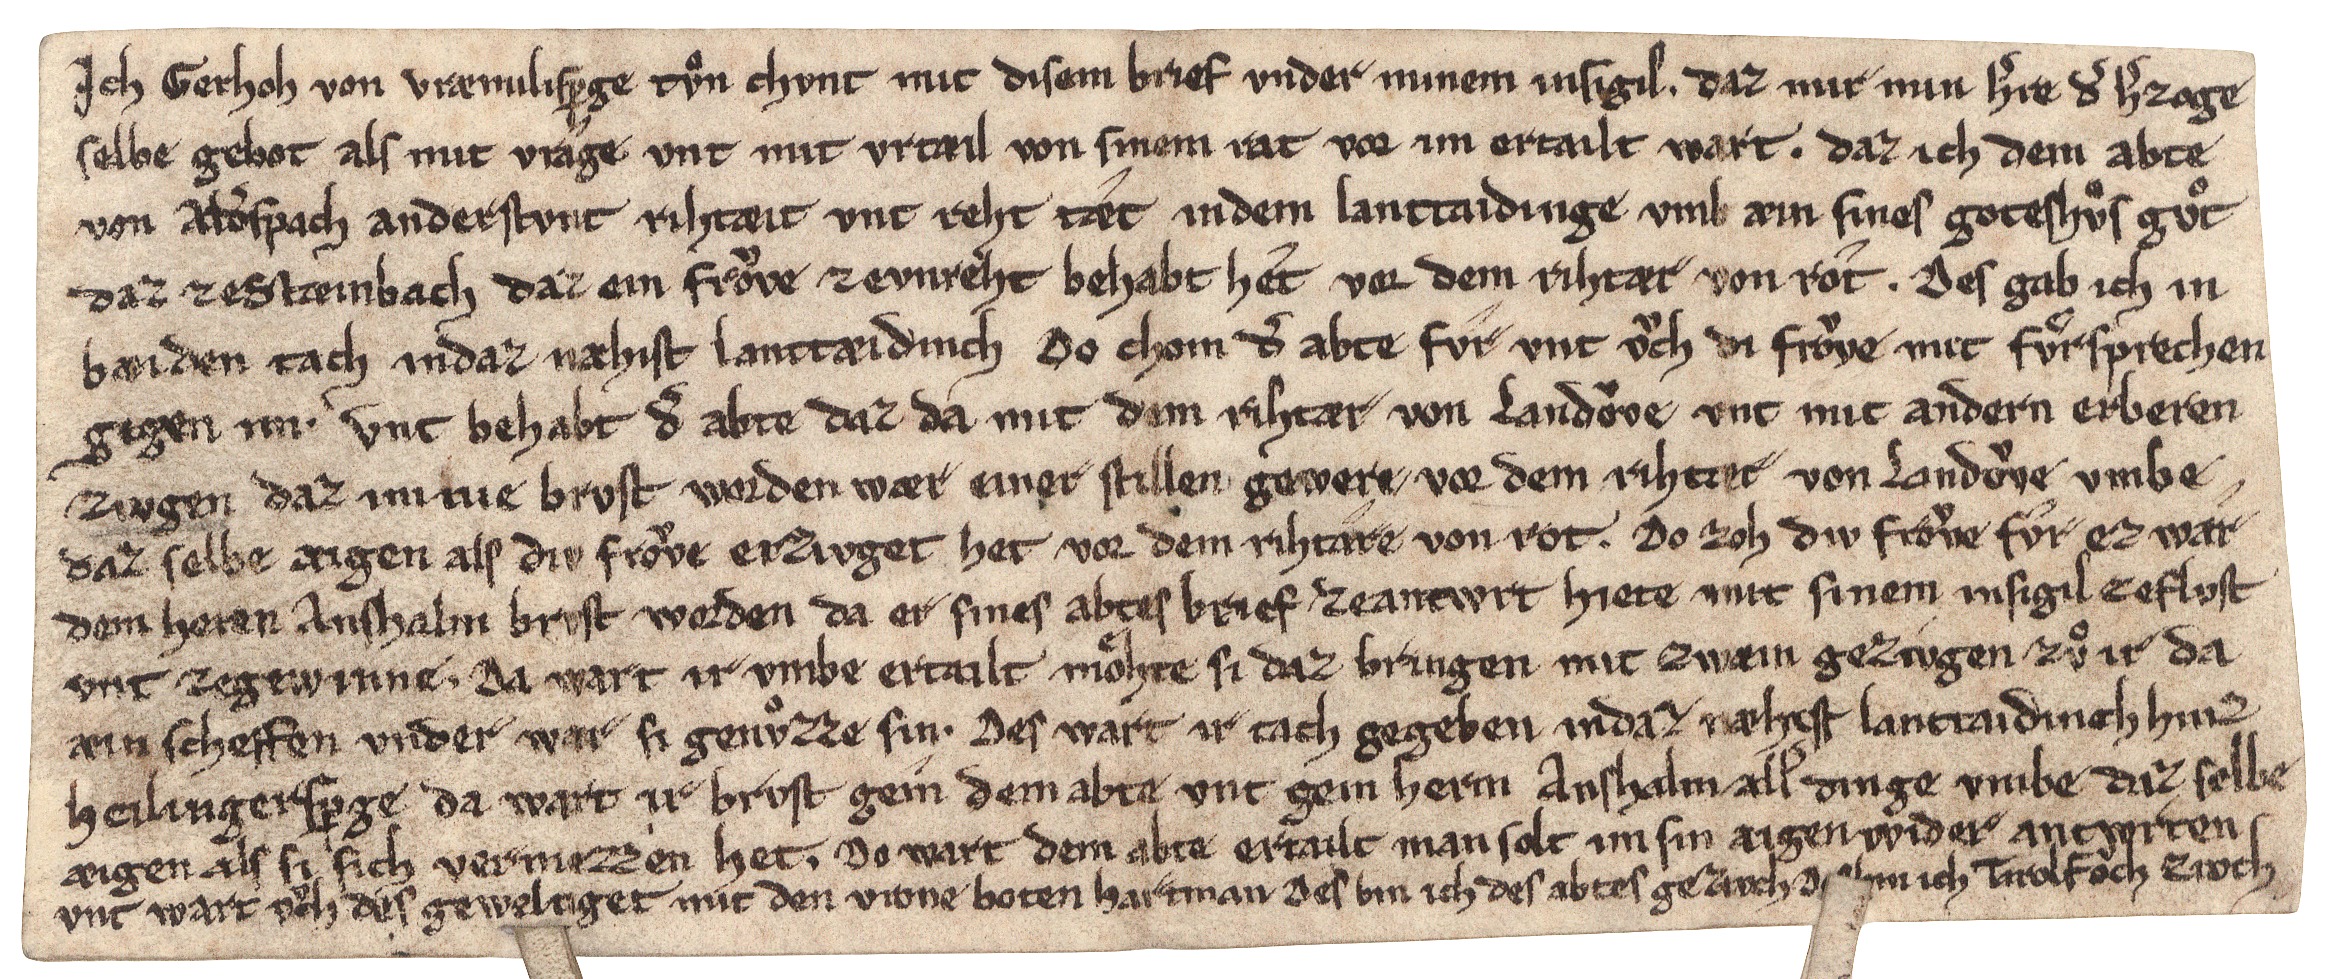 Ich Gerhoh von vræmulisp̱ge tvͦn chvnt mit disem brief vnder minem insigil. daz mir min hˀre dˀ hˀzoge
selbe gebot als mit vrage vnt mit vrtæil von sinem rat vor im ertailt wart. daz ich dem abte
von anderstvnt rihtæit vnt reht tæt indem lanttaidinge vmb æin sines goteshvͦs gvͦt
daz zeStæinbach daz ein froͮve zevnreht behabt het vor dem rihtær von rot. Des gab ich in
bæiden tach indaz næhist lanttæidinch Do chom dˀ abte fvr vnt oͮch di froͮve mit fvͤrsprechen
gegen im. vnt behabt dˀ abte daz da mit dem rihtær von Landoͮve vnt mit andern erberen
zivgen daz im nie brvst worden wær einer stillen gewere vor dem rihtær von Landoͮve vmbe
daz selbe æigen als div froͮve erzivget het vor dem rihtære von rot. Do zoh div froͮve fvr ez wær
dem heren Anshalm brvst worden da er sines abtes brief zeantwrt hiete mit sinem insigil zeflvst
vnt zegewinne. Da wart ir vmbe ertailt moͤhte si daz bringen mit zwæin gezivgen zvͦ ir da
æin scheffen vnder wær si genvͦzze sin. Des wart ir tach gegeben indaz næhest lanttaidinch hinz
heilingersp̱ge da wart ir brvst gein dem abte vnt gein herrn Anshalm allˀ dinge vmbe daz selbe
æigen als si sich vermezzen het. Do wart dem abte ertailt man solt im sin æigen wider antwrten
vnt wart oͮch des geweltiget mit den vrone boten hartman Des bin ich des abtes gezivch bin ich oͮch zivch